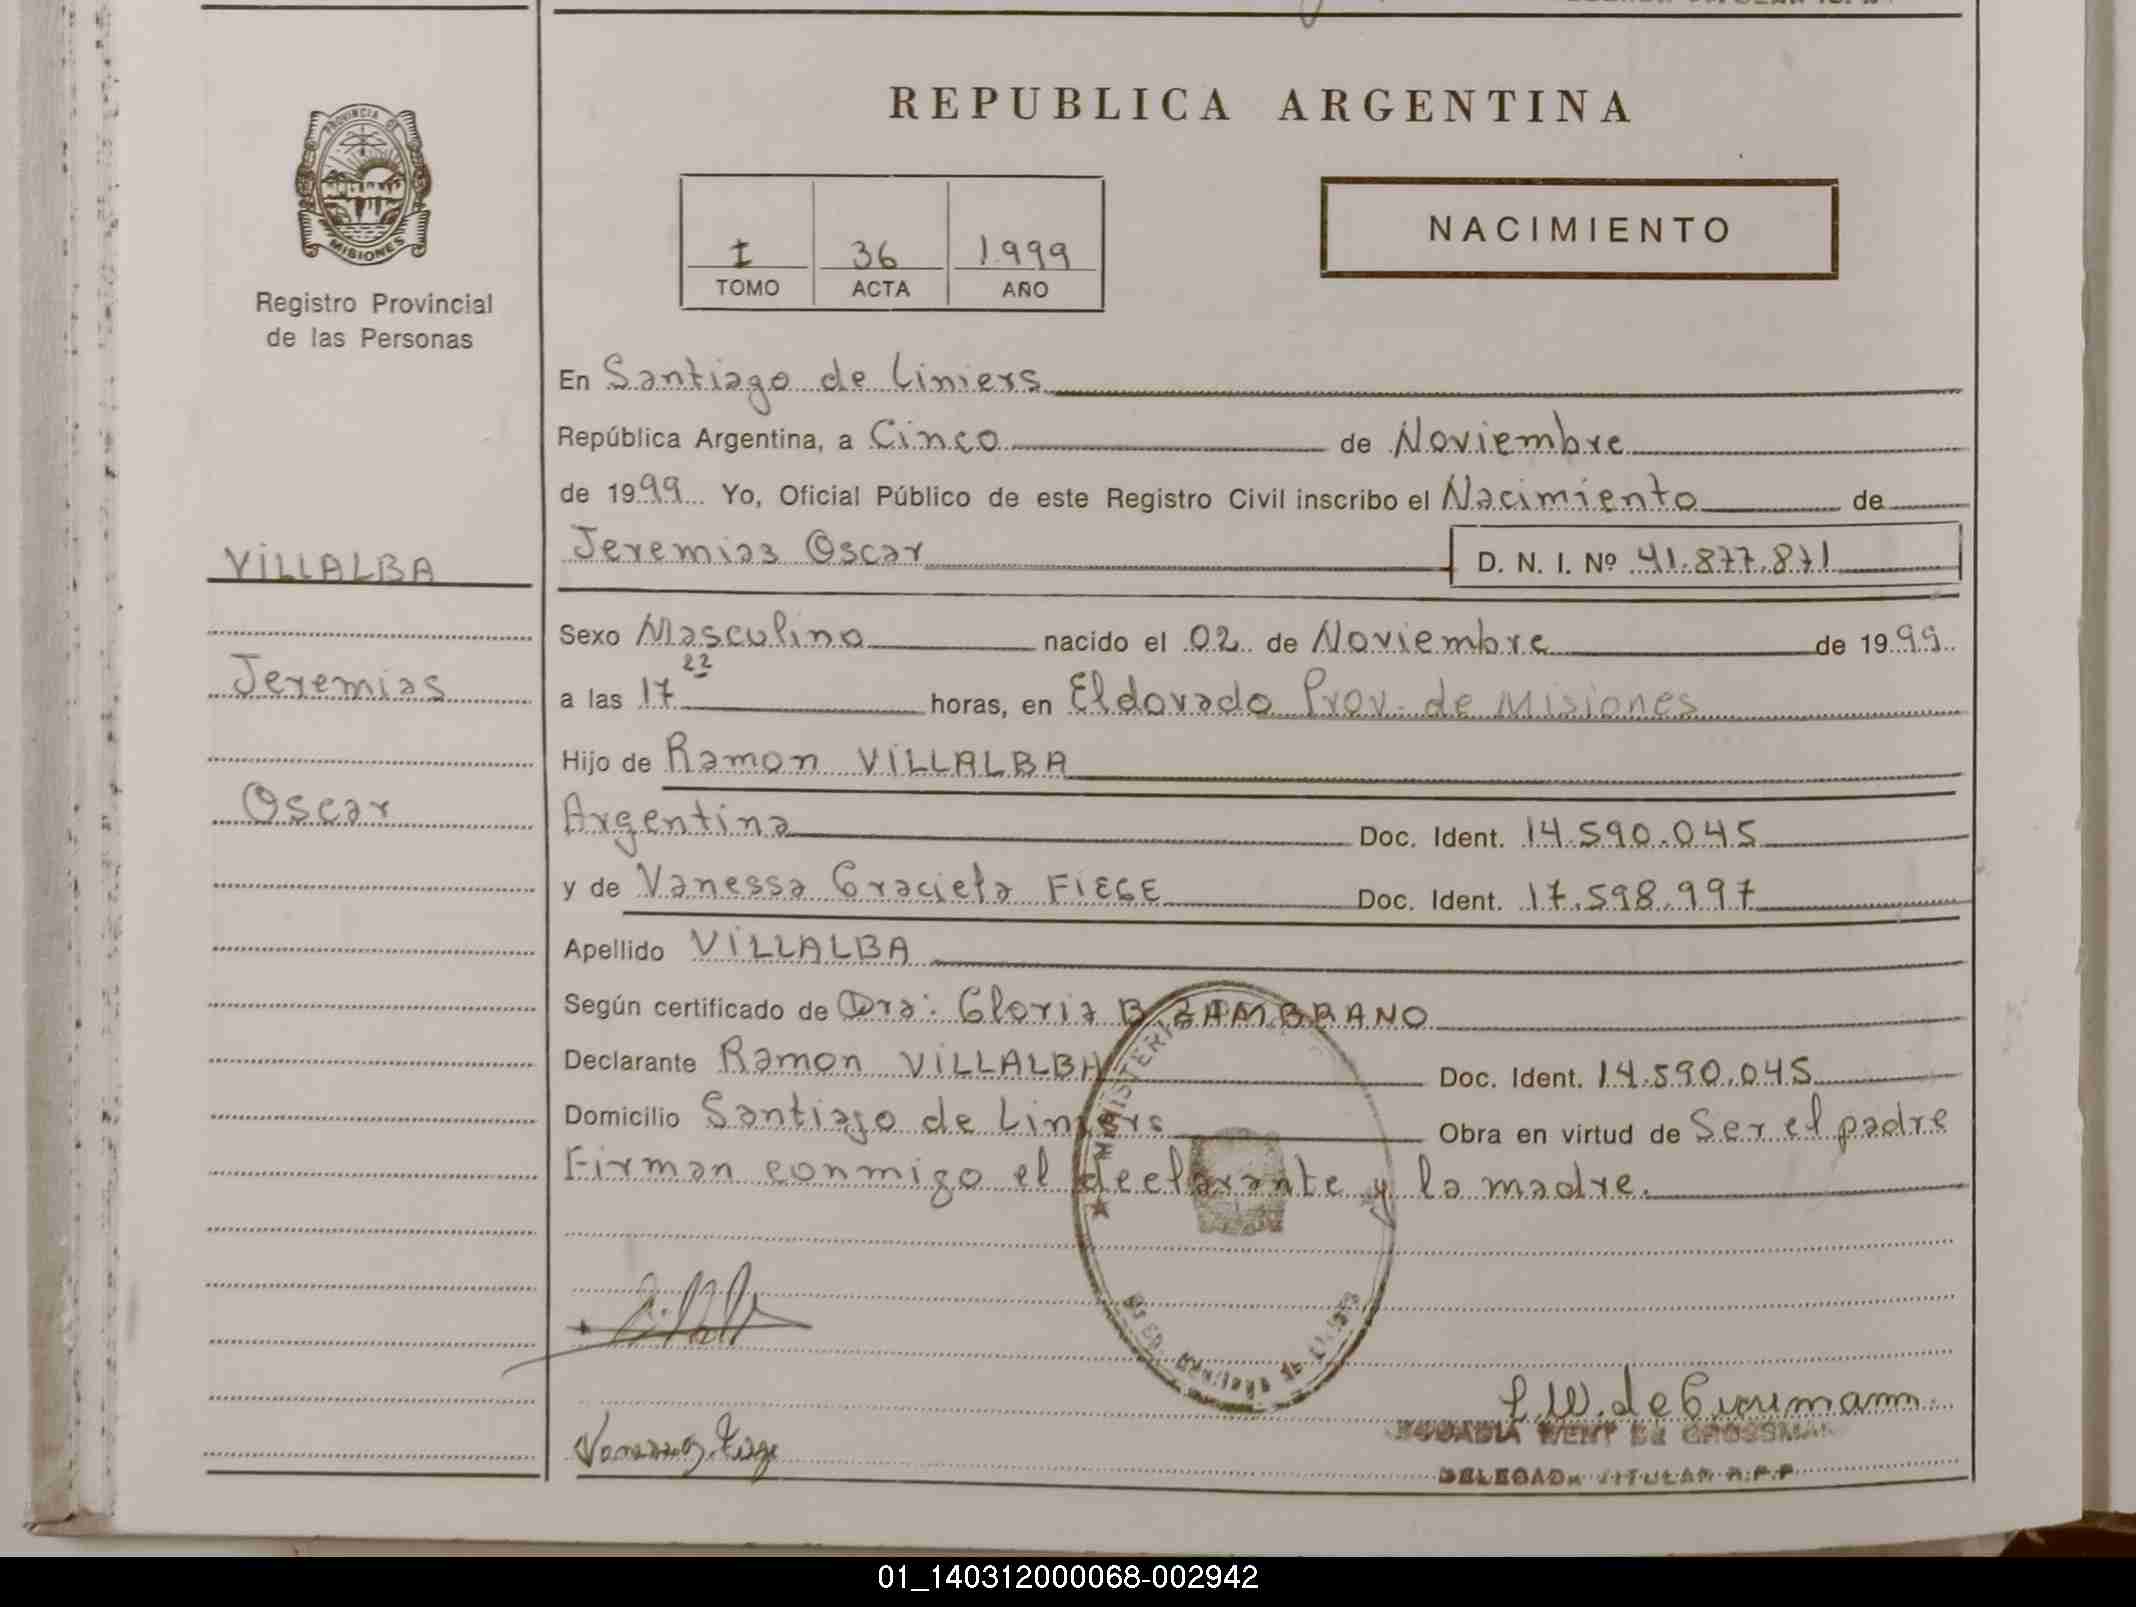 REPUBLICA ARGENTINA
PROVINCIA DE
MISIONES
Registro Provincial
de las Personas
I 36 1.999
TOMO ACTA AÑO
NACIMIENTO
En Santiago de Liniers
República Argentina, a Cinco de Noviembre
de 1999 Yo, Oficial Público de este Registro Civil inscribo el Nacimiento de
VILLALBA
Jeremias Oscar D. N. I. Nº 41.877.871
Sexo Masculino nacido el 02 de Noviembre de 1999
Jeremias
a las 17 22 horas, en Eldorado Prov. de Misiones
Hijo de Ramon VILLALBA
Oscar
Argentina Doc. Ident. 14.590.045
y de Vanessa Graciela FIEGE Doc. Ident. 17.598.997
Apellido VILLALBA
Según certificado de Dra: Gloria B. ZAMBRANO
Declarante Ramon VILLALBA Doc. Ident. 14.590.045
Domicilio Santiago de Liniers Obra en virtud de Ser el padre
Firman conmigo el declarante y la madre.
DELEGADA TITULAR R.P.P.
01_140312000068-002942